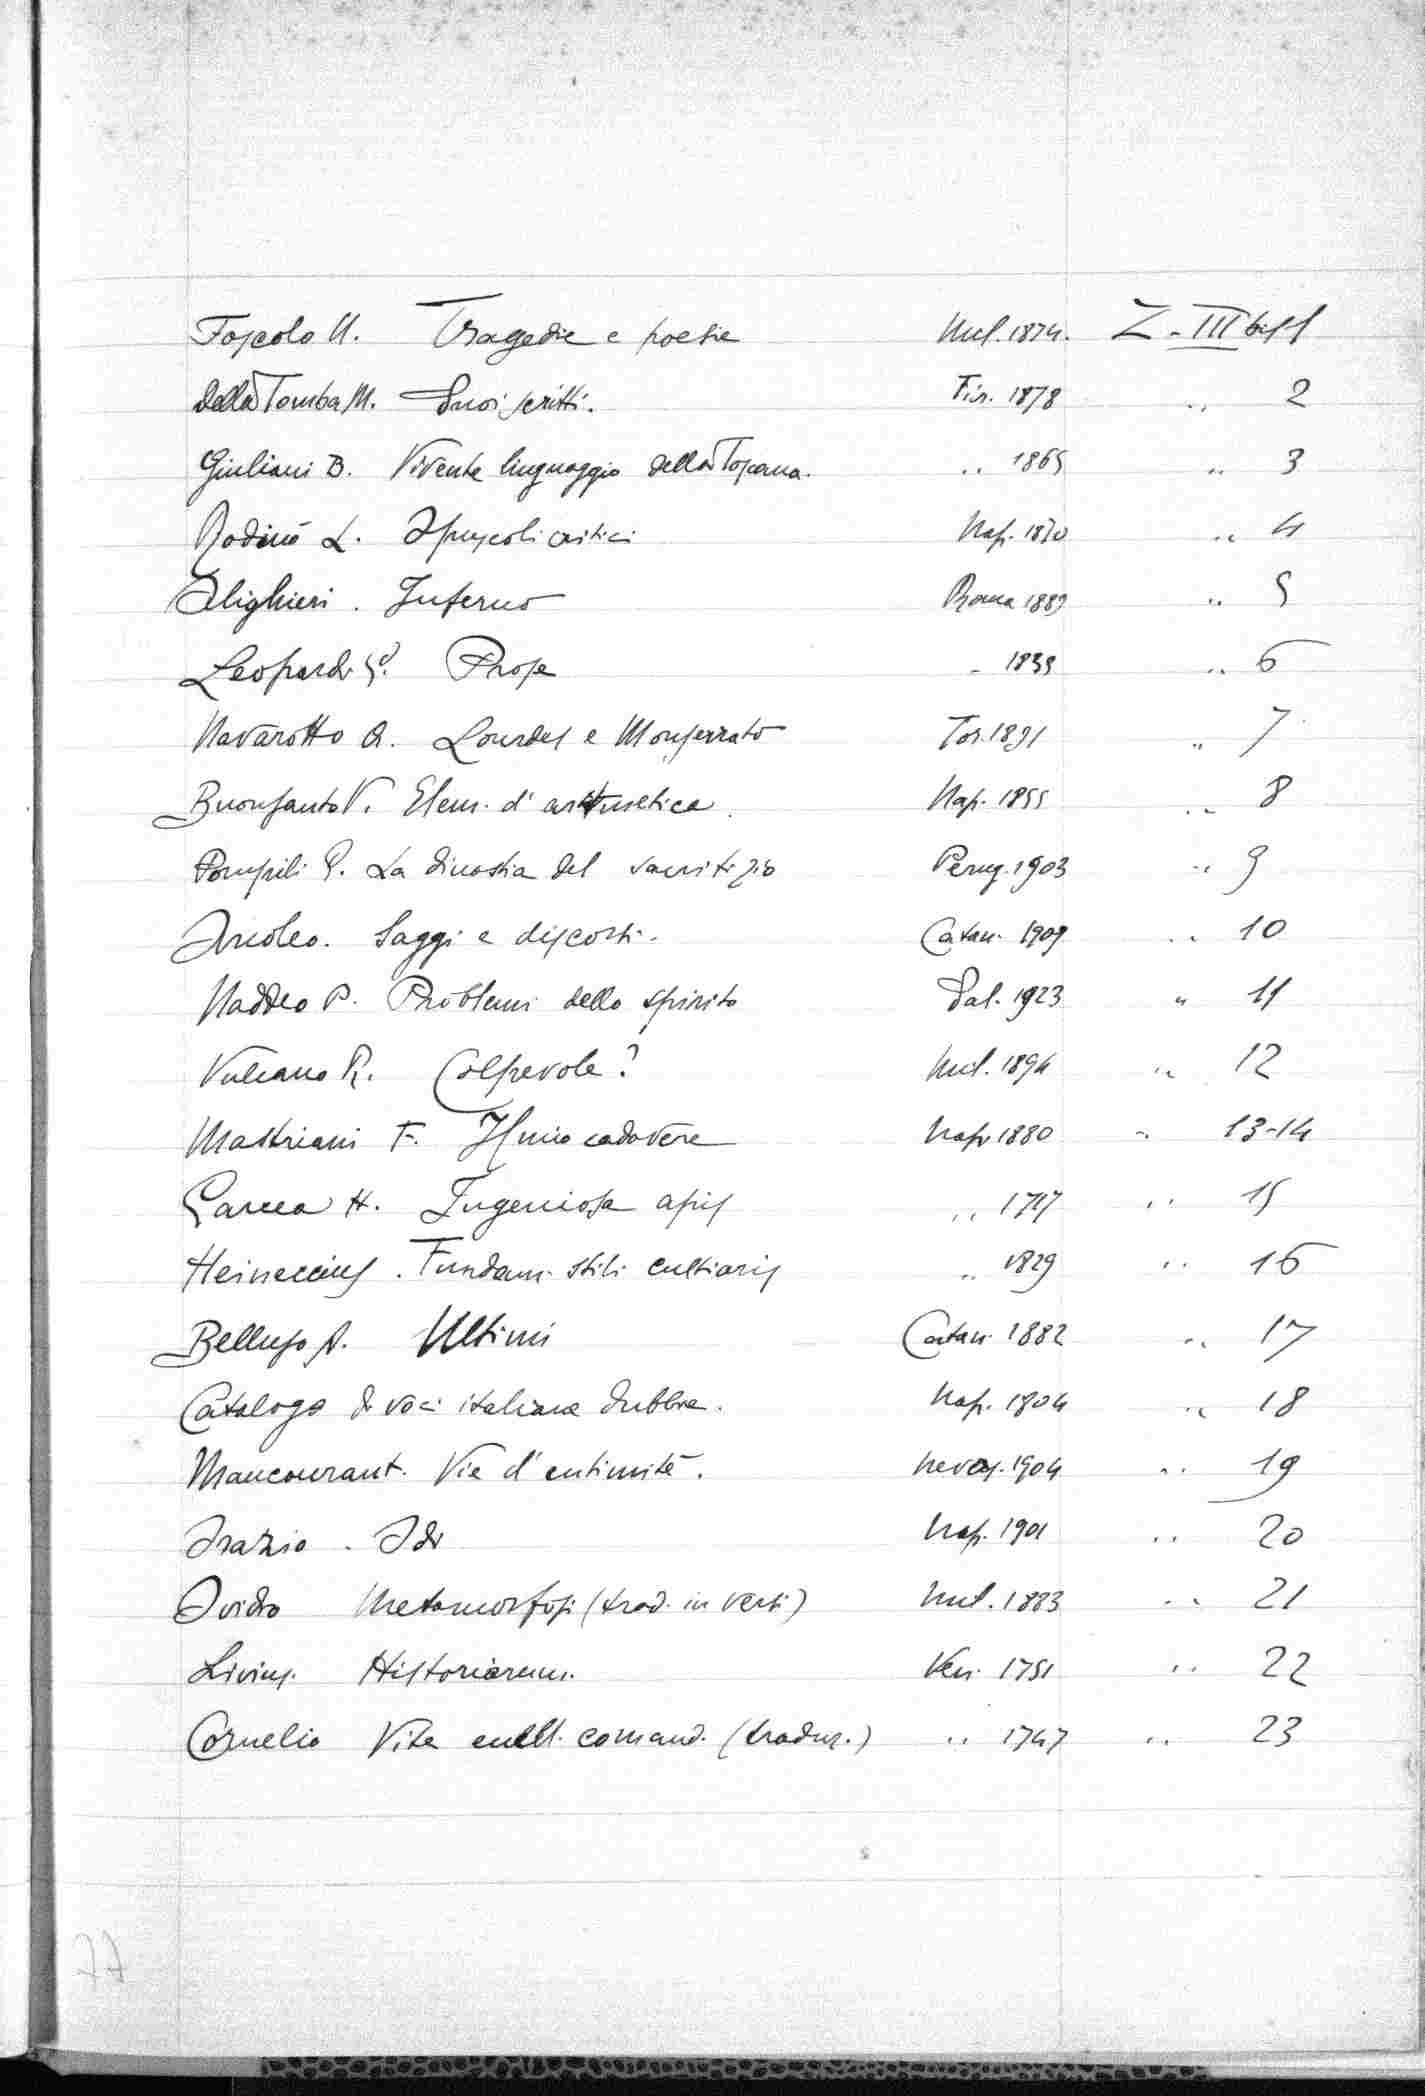 Foscolo U. Tragedie e poesie Mil. 1874. Z - III bis 1
Della Tomba M. Suoi scritti. Fir. 1878 " 2
Giuliani B. Vivente linguaggio della Toscana. " 1865 " 3
Rodinò L. Opuscoli critici Nap. 1870 " 4
Alighieri. Inferno Roma 1889 " 5
Leopardi G. Prose " 6
Navarotto A. Lourdes e Monferrato Tor. 1891 " 7
Buonsanto V. Elem. d'aritmetica. Nap. 1855 " 8
Pompili P. La dinastia del sacrifizio Perug. 1903 " 9
Arcoleo. Saggi e discorsi. Catan. 1909 " 10
Naddeo P. Problemi dello spirito Sal. 1923 " 11
Vulcano R. Colpevole? Mil. 1894 " 12
Mastriani F. Il mio cadavere Nap. 1880 " 13-14
H. Ingeniosa apis " 1717 " 15
Heineccius. Fundam. stili cultioris " 1829 " 16
Belluso A. Ultimi Catan. 1882 " 17
Catalogo di voci italiane dubbie. Nap. 1804 " 18
Maucourant. Vie d'entimité. Nevers. 1904 " 19
Orazio. Odi Nap. 1901 " 20
Ovidio Metamorfosi (trad. in versi) Mil. 1883 " 21
Livius. Historiarum. Ven. 1751 " 22
Cornelio Vite eccell. comand. (traduz.) " 1747 " 23
77